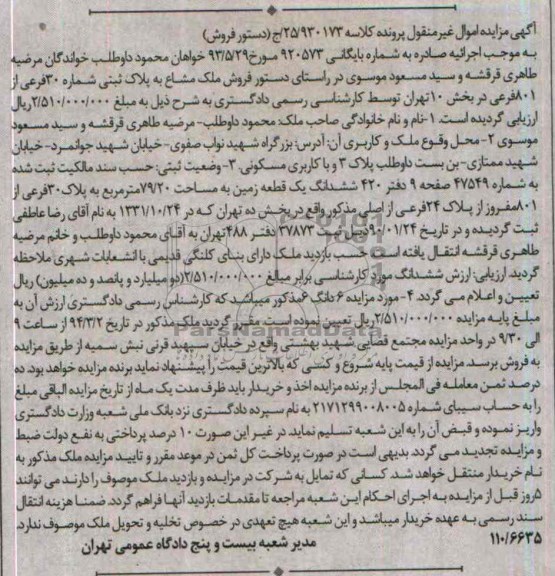 آگهی مزایده اموال غیرمنقول پرونده کلاسه ۲۵/۹۳۰۱۷۳/ج (دستور فروش)
به موجب اجرائیه صادره به شماره بایگانی ۹۲۰۵۷۳ مورخ ۹۳/۵/۲۹ خواهان محمود داوطلب خواندگان مرضیه
طاهری قرقشه و سید مسعود موسوی در راستای دستور فروش ملک مشاع به پلاک ثبتی شماره ۳۰فرعی از
۸۰۱فرعی در بخش ۱۰تهران توسط کارشناسی رسمی دادگستری به شرح ذیل به مبلغ ۲/۵۱۰/۰۰۰/۰۰۰ریال
ارزیابی گردیده است. ۱-نام و نام خانوادگی صاحب ملک: محمود داوطلب- مرضیه طاهری قرقشه و سید مسعود
موسوی ۲- محل وقوع ملک و کاربری آن: آدرس: بزرگراه شهید نواب صفوی-خیابان شهید جوانمرد-خیابان
شهید ممتازی-بن بست داوطلب پلاک ۳ و با کاربری مسکونی. ۳-وضعیت ثبتی: حسب سند مالکیت ثبت شده
به شماره ۴۷۵۴۹ صفحه ۹ دفتر ۴۲۰ ششدانگ یک قطعه زمین به مساحت ۷۹/۲۰مترمربع به پلاک ۳۰فرعی از
۸۰۱مفروز از پلاک ۲۴فرعی از اصلی مذکور واقع در بخش ده تهران که در ۱۳۳۱/۱۰/۲۴ به نام آقای رضا عاطفی
ثبت گردیده و در تاریخ ۹۰/۰۱/۲۴ ذیل ثبت ۳۷۸۷۳ دفتر ۴۸۸تهران به آقای محمود داوطلب و خانم مرضیه
طاهری قرقشه انتقال یافته است حسب بازدید ملک دارای بنای کلنگی قدیمی با انشعابات شهری ملاحظه
گردید. ارزیابی: ارزش ششدانگ مورد کارشناسی برابر مبالغ ۲/۵۱۰/۰۰۰/۰۰۰(دو میلیارد و پانصد و ده میلیون) ریال
تعیین و اعلام می گردد. ۴-مورد مزایده ۶دانگ ۶مذکور میباشد که کارشناس رسمی دادگستری ارزش آن به
مبلغ پایه مزایده ۲/۵۱۰/۰۰۰/۰۰۰ ریال تعیین نموده است. مقرر گردید ملک مذکور در تاریخ ۹۴/۳/۲ از ساعت ۹
الی ۹/۳۰ در واحد مزایده مجتمع قضایی شهید بهشتی واقع در خیابان سپهبد قرنی نبش سمیه از طریق مزایده
به فروش برسد. مزایده از قیمت پایه شروع و کسی که بالاترین قیمت را پیشنهاد نماید برنده مزایده خواهد بود. ده
درصد ثمن معامله فی المجلس از برنده مزایده اخذ و خریدار باید ظرف مدت یک ماه از تاریخ مزایده الباقی مبلغ
را به حساب سیبای شماره ۲۱۷۱۲۹۹۰۰۸۰۰۵ به نام سپرده دادگستری نزد بانک ملی شعبه وزارت دادگستری
واریز نموده و قبض آن را به این شعبه تسلیم نماید. در غیر این صورت ۱۰ درصد پرداختی به نفع دولت ضبط
و مزایده تجدید می گردد. بدیهی است در صورت پرداخت کل ثمن در موعد مقرر و تایید مزایده ملک مذکور به
نام خریدار منتقل خواهد شد. کسانی که تمایل به شرکت در مزایده و بازدید ملک موصوف را دارند می توانند
۵روز قبل از مزایده به اجرای احکام این شعبه مراجعه تا مقدمات بازدید آنها فراهم گردد. ضمنا هزینه انتقال
سند رسمی به عهده خریدار میباشد و این شعبه هیچ تعهدی در خصوص تخلیه و تحویل ملک موصوف ندارد.
۱۱۰/۶۶۳۵
مدیر شعبه بیست و پنج دادگاه عمومی تهران
ParsNamadData